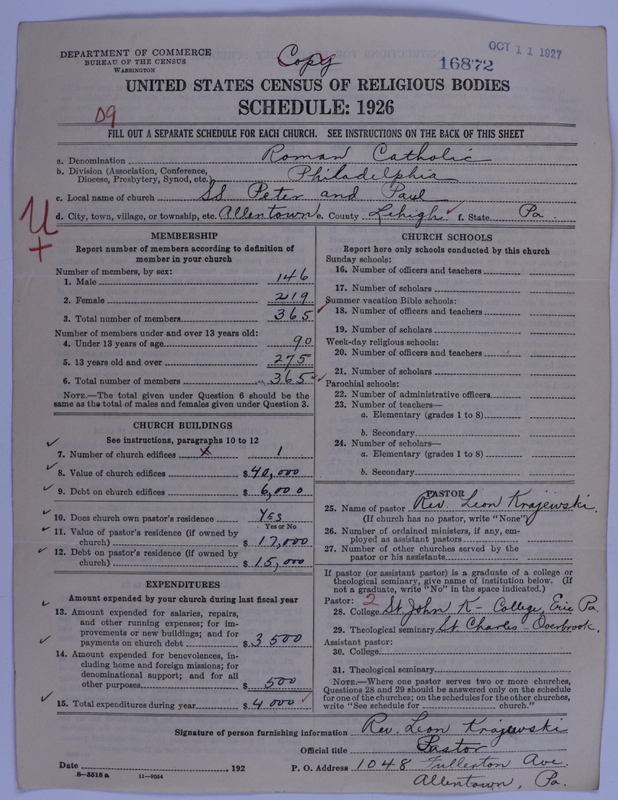 DEPARTMENT OF COMMERCE
BUREAU OF THE CENSUS
WASHINGTON
Copy
16872
OCT 11 1927
UNITED STATES CENSUS OF RELIGIOUS BODIES
SCHEDULE: 1926
D9
FILL OUT A SEPARATE SCHEDULE FOR EACH CHURCH. SEE INSTRUCTIONS ON THE BACK OF THIS SHEET
a. Denomination Roman Catholic
b. Division (Association, Conference, Diocese, Presbytery, Synod, etc.) Philadelphia
c. Local name of church SS Peter and Paul
d. City, town, village, or township, etc. Allentown e. County Lehigh f. State Pa.
U
+
MEMBERSHIP
Report number of members according to definition of
member in your church
Number of members, by sex:
1. Male 146
2. Female 219
3. Total number of members 365
Number of members under and over 13 years old:
4. Under 13 years of age 90
5. 13 years old and over 275
6. Total number of members 365
NOTE.—The total given under Question 6 should be the
same as the total of males and females given under Question 3.
CHURCH BUILDINGS
See instructions, paragraphs 10 to 12
7. Number of church edifices 1
8. Value of church edifices $ 40,000
9. Debt on church edifices $ 6,000
10. Does church own pastor's residence Yes
Yes or No
11. Value of pastor's residence (if owned by
church) $ 17,000
12. Debt on pastor's residence (if owned by
church) $ 15,000
EXPENDITURES
Amount expended by your church during last fiscal year
13. Amount expended for salaries, repairs,
and other running expenses; for im-
provements or new buildings; and for
payments on church debt $ 3500
14. Amount expended for benevolences, in-
cluding home and foreign missions; for
denominational support; and for all
other purposes $ 500
15. Total expenditures during year $ 4000
CHURCH SCHOOLS
Report here only schools conducted by this church
Sunday schools:
16. Number of officers and teachers
17. Number of scholars
Summer vacation Bible schools:
18. Number of officers and teachers
19. Number of scholars
Week-day religious schools:
20. Number of officers and teachers
21. Number of scholars
Parochial schools:
22. Number of administrative officers
23. Number of teachers—
a. Elementary (grades 1 to 8)
b. Secondary
24. Number of scholars—
a. Elementary (grades 1 to 8)
b. Secondary
PASTOR
25. Name of pastor Rev. Leon Krajewski
(If church has no pastor, write "None")
26. Number of ordained ministers, if any, em-
ployed as assistant pastors
27. Number of other churches served by the
pastor or his assistants
If pastor (or assistant pastor) is a graduate of a college or
theological seminary, give name of institution below. (If
not a graduate, write "No" in the space indicated.)
Pastor: 2
28. College St. John K - College, Erie Pa.
29. Theological seminary St Charles - Overbrook.
Assistant pastor:
30. College
31. Theological seminary
NOTE.—Where one pastor serves two or more churches,
Questions 28 and 29 should be answered only on the schedule
for one of the churches; on the schedules for the other churches,
write "See schedule for church."
Signature of person furnishing information Rev. Leon Krajewski
Official title Pastor
Date , 192
P. O. Address 1048 Fullerton Ave.
Allentown, Pa.
8—5518 a 11—9054